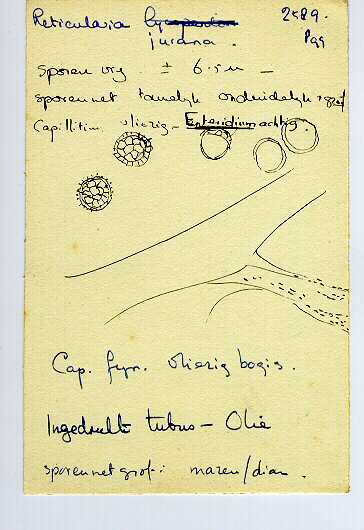 Reticularia lycoperdon 2589.
jurana. Pgg
sporen vrij ± 6.5 u —
sporennet tamelijk onduidelijk
Capillitium vliezig - Enteridiumachtig.
Cap. fijn. vliezig bogig.
Ingedrukte tubus - Olie
sporennet grof: mazen/diam